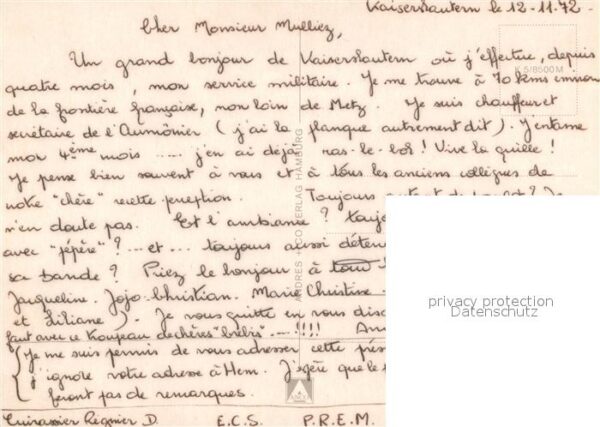 Kaiserslautern le 12-11.72
Cher Monsieur Mulliez,
Un grand bonjour de Kaiserslautern où j'effectue, depuis
quatre mois, mon service militaire. Je me trouve à 70 kms environ
K 5/8500 M
de la frontière française, non loin de Metz. Je suis chauffeur et
secrétaire de l'Aumônier (j'ai la planque autrement dit). J'entame
mon 4ème mois ..... j'en ai déjà ras-le-bol! Vive la quille!
Je pense bien souvent à vous et à tous les anciens collègues de
notre "chère" recette perception. Toujours
n'en doute pas. Et l'ambiance?
avec "pépère"? ...et... toujours aussi
sa bande? Priez le bonjour à
Jacqueline. Jojo. Christian. Marie Christine.
et Liliane). Je vous quitte en vous
faut avec ce troupeau de chères "brebis" ....!!!!
(Je me suis permis de vous adresser cette
j'ignore votre adresse à Hem. J'espère que le
feront pas de remarques.
Cuirassier Régnier D. E.C.S. P.R.E.M.
ANDRES + CO VERLAG HAMBURG
privacy protection
Datenschutz